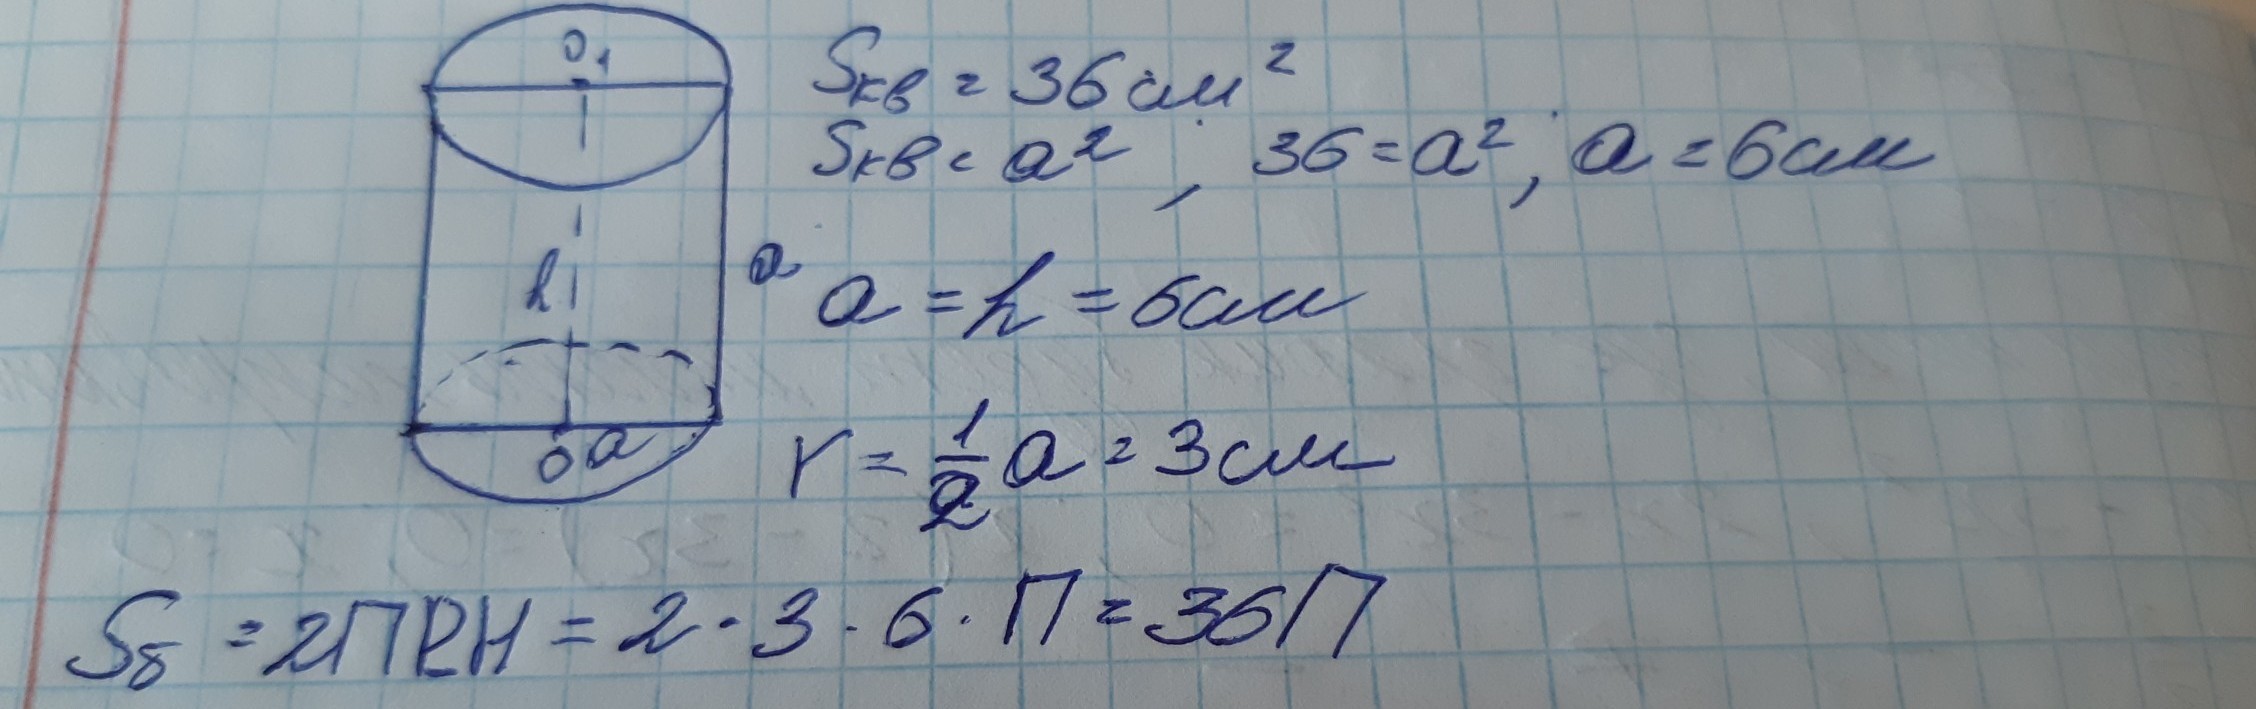 O₁
h
a
O a
Sкв = 36 см²
Sкв = a² , 36 = a² ; a = 6 см
a = h = 6 см
r = 1/2 a = 3 см
Sб = 2ПRH = 2 · 3 · 6 · П = 36П